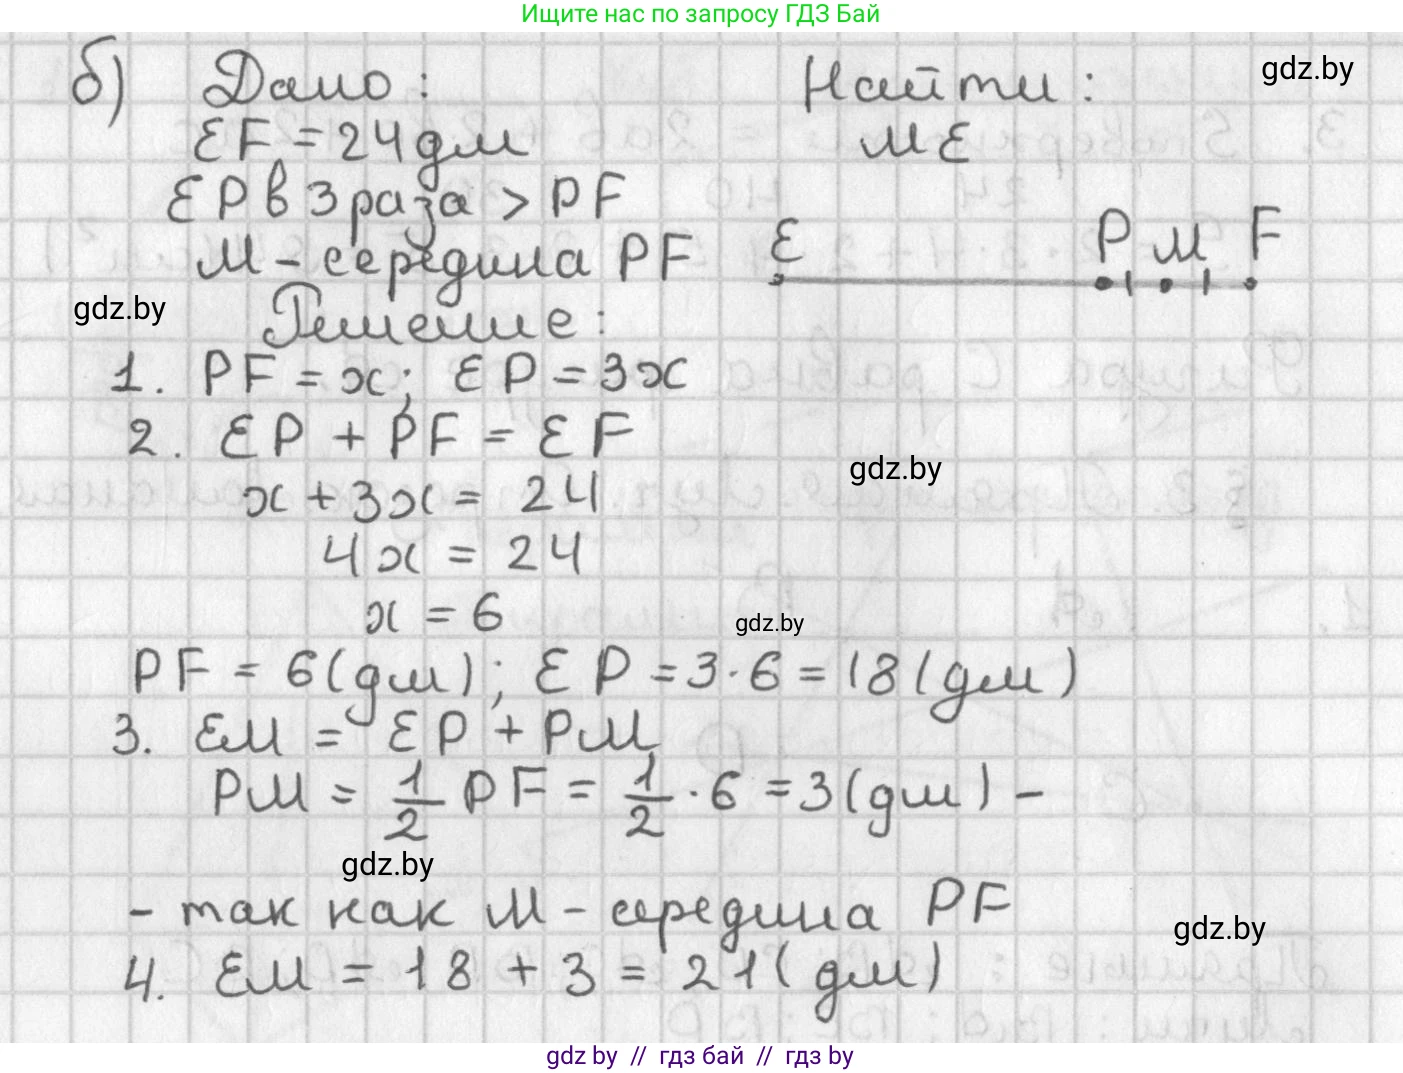 Ищите нас по запросу ГДЗ Бай
б) Дано:
Найти:
gdz.by
EF = 24 дм
ME
EP в 3 раза > PF
M - середина PF
E P M F
gdz.by
Решение:
1. PF = x; EP = 3x
2. EP + PF = EF
gdz.by
x + 3x = 24
4x = 24
x = 6
gdz.by
PF = 6 (дм); EP = 3 · 6 = 18 (дм)
3. EM = EP + PM
PM = 1/2 PF = 1/2 · 6 = 3 (дм) -
gdz.by
- так как M - середина PF
gdz.by
4. EM = 18 + 3 = 21 (дм)
gdz by // гдз бай // гдз by